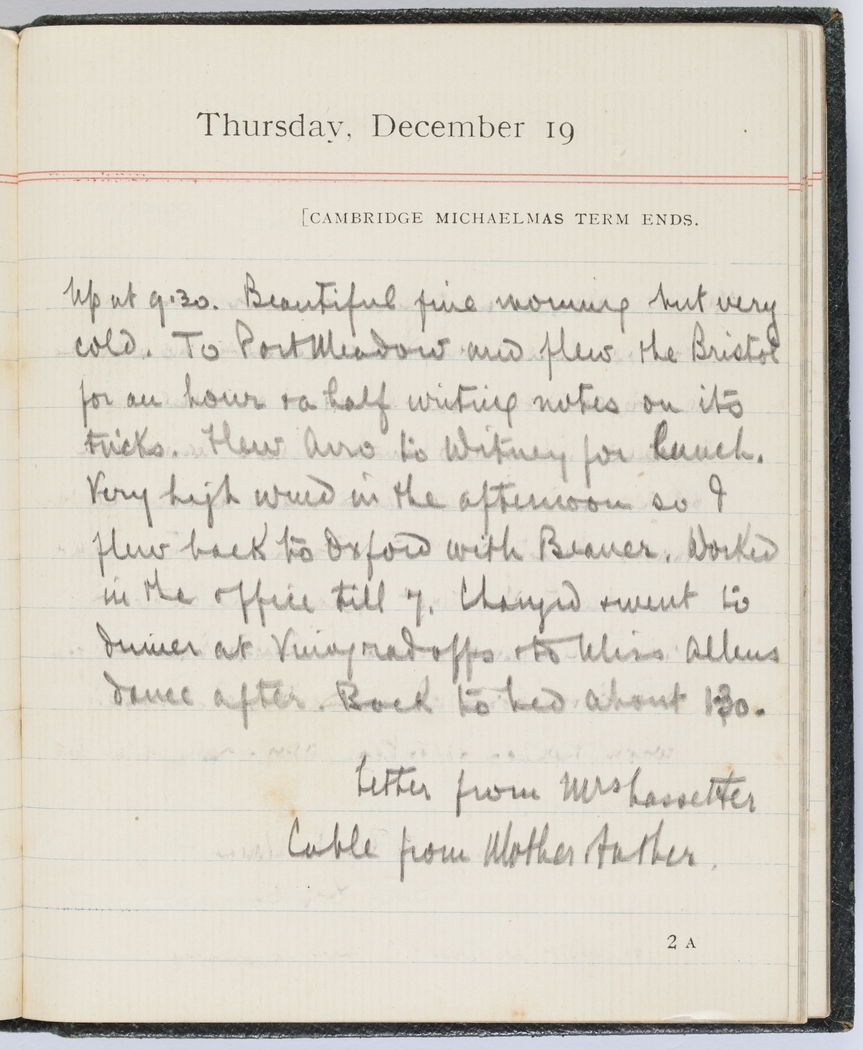 Thursday, December 19
[CAMBRIDGE MICHAELMAS TERM ENDS.
Up at 9.30. Beautiful fine morning but very
cold. To Port Meadow and flew the Bristol
for an hour & a half writing notes on its
tricks. Flew Avro to Witney for lunch.
Very high wind in the afternoon so I
flew back to Oxford with Beaver. Worked
in the office till 7. Changed & went to
dinner at Vinogradoffs & to Miss Allens
dance after. Back to bed about 1.30.
Letter from Mrs Lassetter
Cable from Mother & Father.
2 A